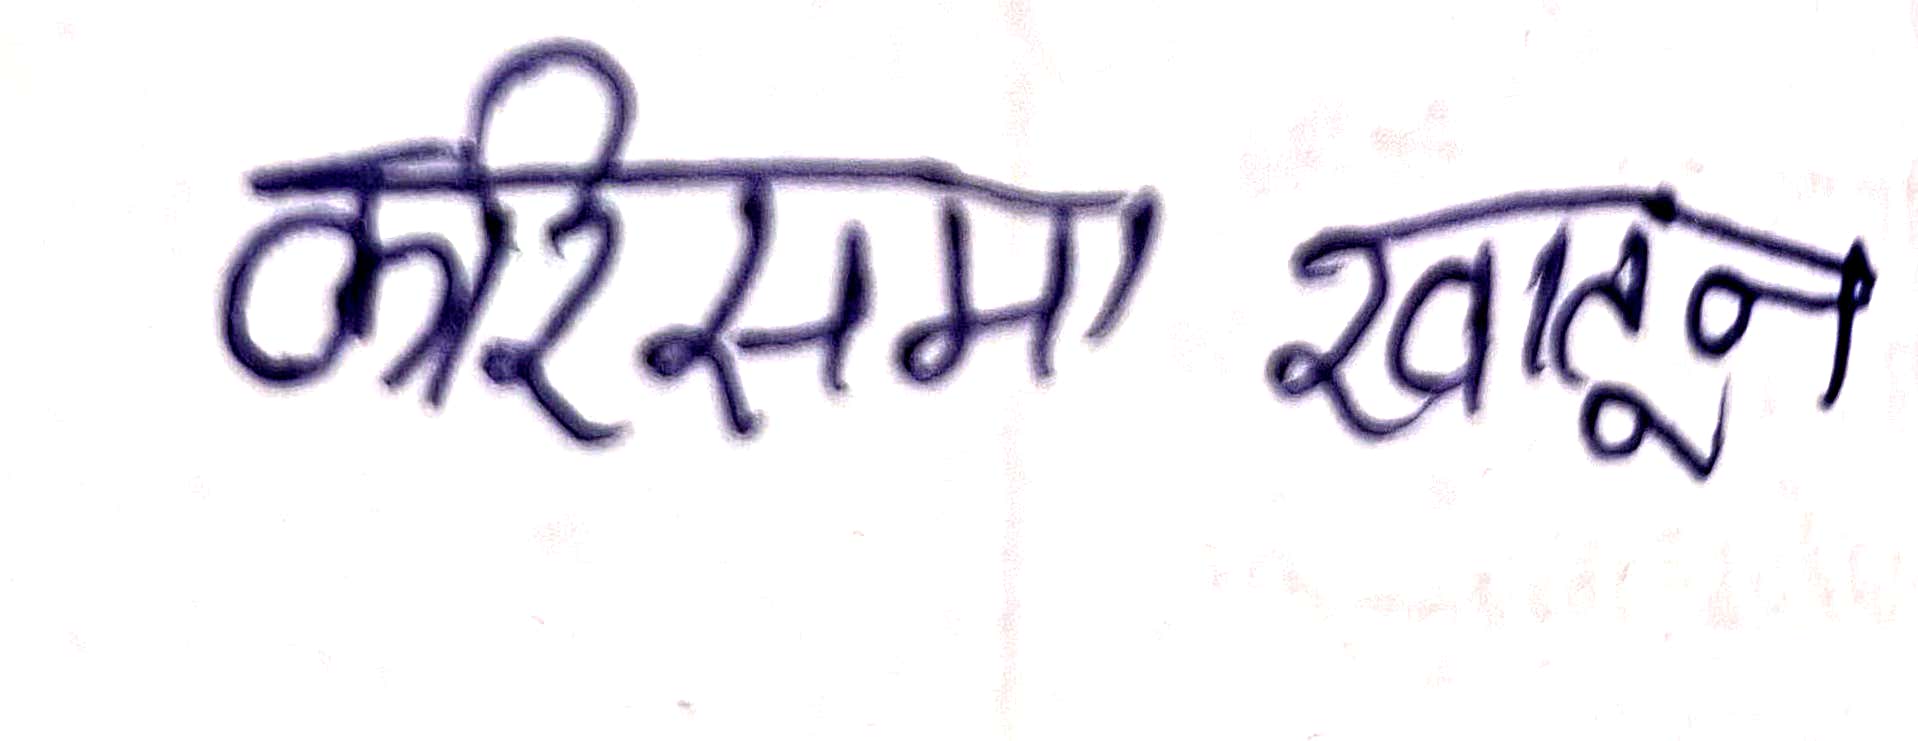 करिसमा खातून